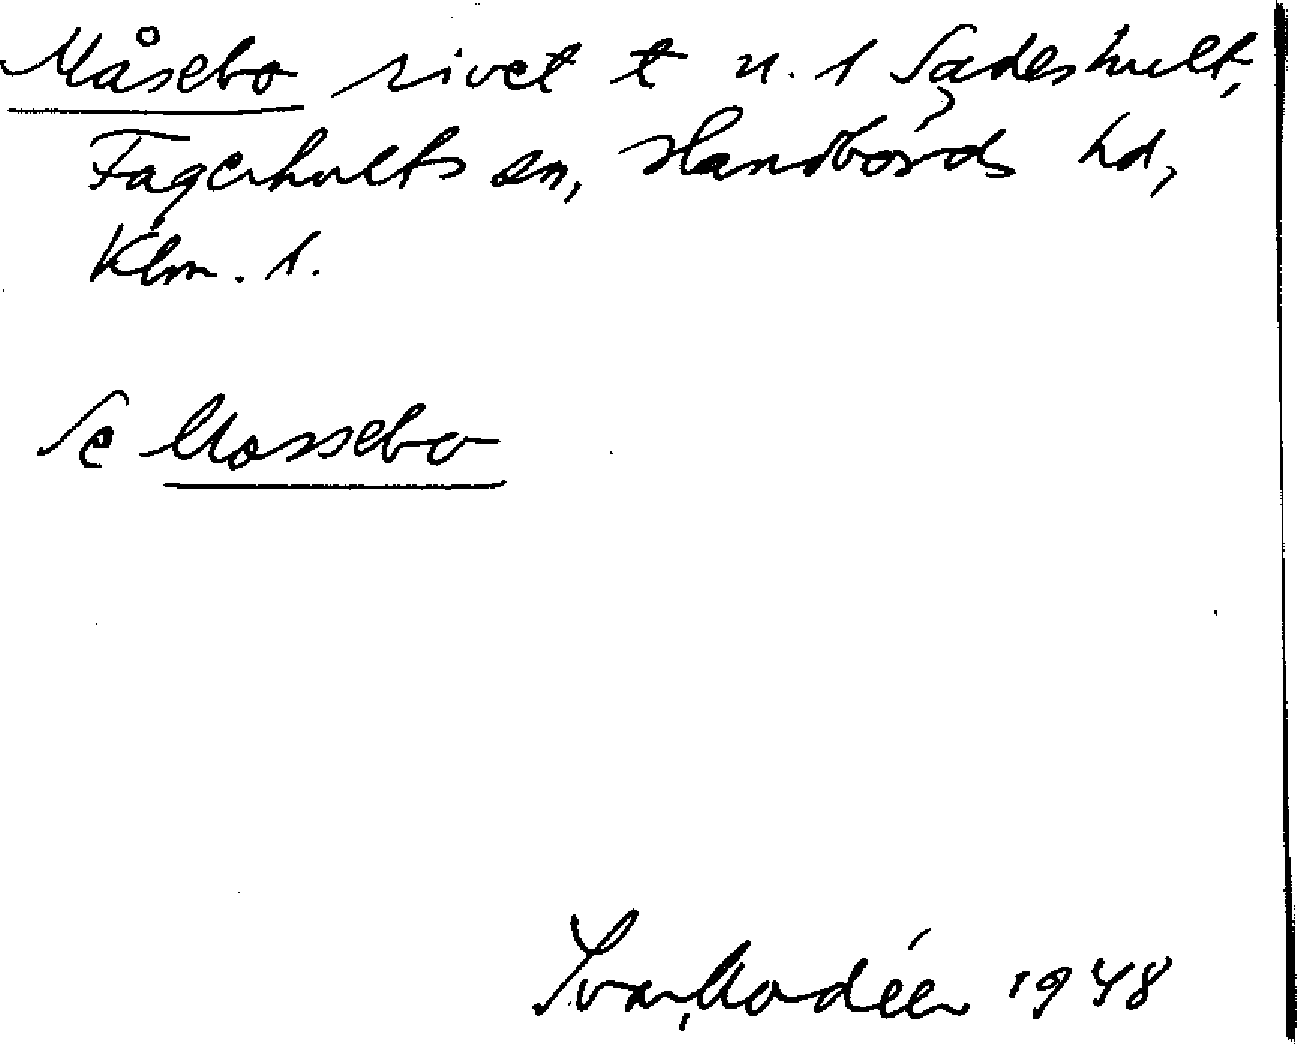 Måsebo rivet t u. 1 Sadeshult,
Fagerhults sn, Handbörds hd,
Klm. l.
Se Mossebo
Ivar Modéer 1948